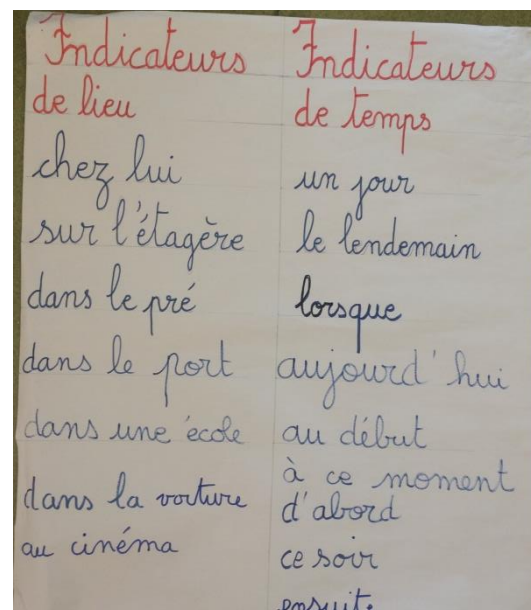 Indicateurs
de lieu
chez lui
sur l'étagère
dans le pré
dans le port
dans une école
dans la voiture
au cinéma
Indicateurs
de temps
un jour
le lendemain
lorsque
aujourd'hui
au début
à ce moment
d'abord
ce soir